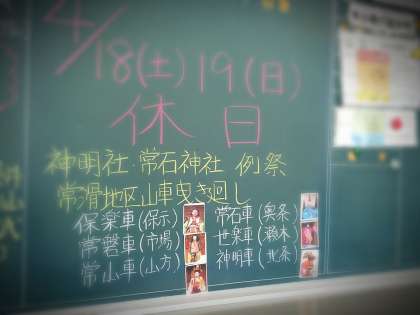 4/18(土)19(日)
休日
神明社・常石神社 例祭
常滑地区山車曳き廻し
保楽車(保示) 常石車(奥条)
常磐車(市場) 世楽車(瀬木)
常山車(山方) 神明車(北条)